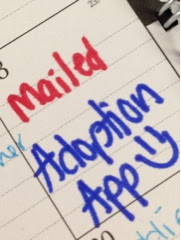 8
Mailed
Adoption
App